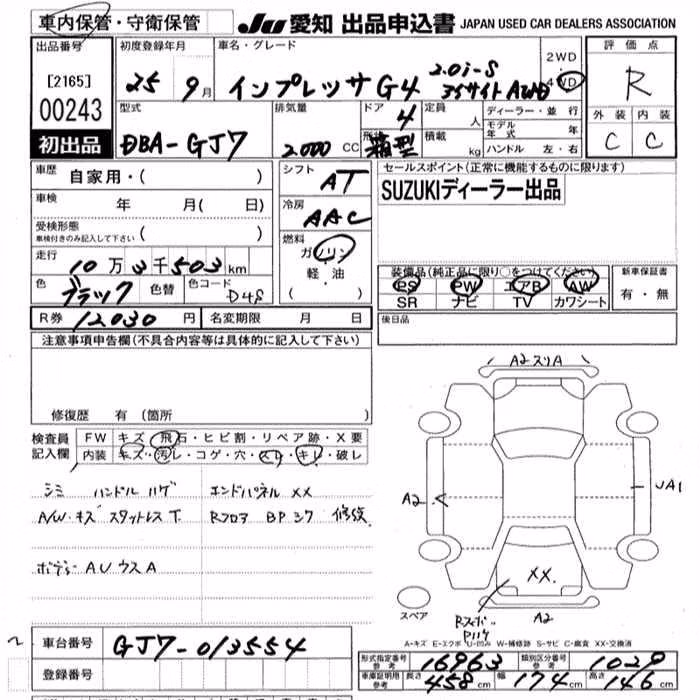 車内保管・守衛保管 JU 愛知 出品申込書 JAPAN USED CAR DEALERS ASSOCIATION
出品番号 [2165] 00243 初出品
初度登録年月 25 9月
車名・グレード インプレッサG4 2.0i-S アイサイト AWD
2WD 4WD
評価点 R
外装 内装
C C
型式 DBA-GJ7
排気量 2.000 CC
ドア 4
形状 箱型
定員 人
積載 kg
ディーラー・並行
モデル年式 年
ハンドル 左・右
車歴 自家用・( )
車検 年 月( 日)
受検形態 車検付きのみ記入して下さい ( )
走行 10万3千503km
色 ブラック 色替 色コード D4S
シフト AT
冷房 AAC
燃料 ガソリン・軽・油 ( )
セールスポイント(正常に機能するものに限ります)
SUZUKIディーラー出品
装備品(純正品に限り○をつけてください)
PS PW エアB AW
SR ナビ TV カワシート
新車保証書 有・無
後日品
R券 12030円 名変期限 月 日
注意事項申告欄(不具合内容等は具体的に記入して下さい)
修復歴 有(箇所 )
検査員記入欄
FW キズ・飛石・ヒビ割・リペア跡・X要
内装 キズ・汚レ・コゲ・穴・スレ・キレ・破レ
シミ ハンドルハゲ エンドパネル XX
A/W・キズ スタットレスT. Rフロア BP ミワ 修復
ボディーAUウスA
A2スリA
A2
UA1
XX.
A2
スペア
A-キズ E-エクボ U-凹み W-補修跡 S-サビ C-腐食 XX-交換済
車台番号 GJ7-013554
登録番号
形式指定番号 参考 16963 類別区分番号 参考 1029
車庫証明用 参考 長さ 458cm 幅 174cm 高さ 146cm